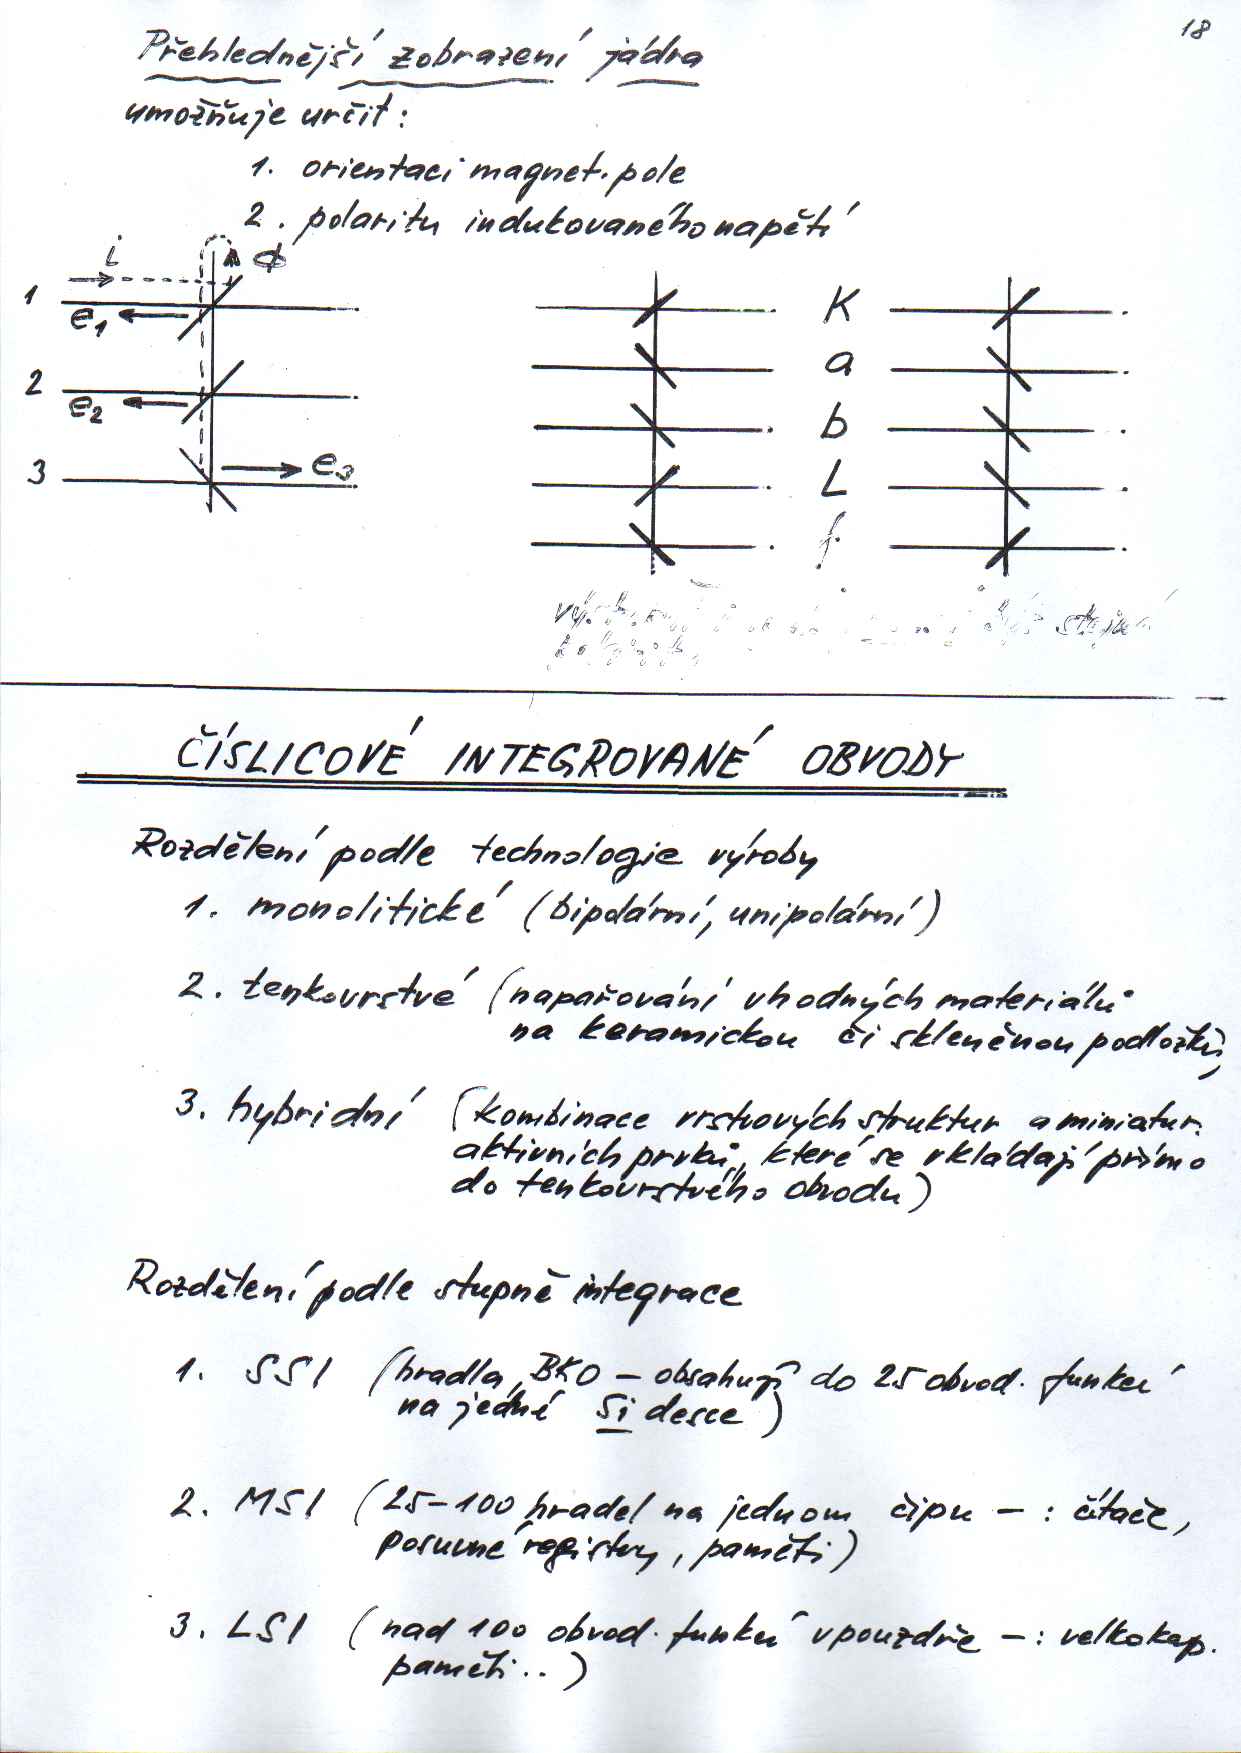 18
Přehlednější zobrazení jádra
umožňuje určit:
1. orientaci magnet. pole
2. polaritu indukovaného napětí
i ϕ
1 e1
2 e2
3 e3
K
a
b
L
f
ČÍSLICOVÉ INTEGROVANÉ OBVODY
Rozdělení podle technologie výroby
1. monolitické (bipolární, unipolární)
2. tenkovrstvé (napařování vhodných materiálů
na keramickou či skleněnou podložku)
3. hybridní (kombinace vrstvových struktur a miniatur.
aktivních prvků, které se vkládají přímo
do tenkovrstvého obvodu)
Rozdělení podle stupně integrace
1. SSI (hradla, BKO – obsahují do 25 obvod. funkcí
na jedné Si desce)
2. MSI (25–100 hradel na jednom čipu – : čítače,
posuvné registry, paměti)
3. LSI (nad 100 obvod. funkcí v pouzdře – : velkokap.
paměti..)